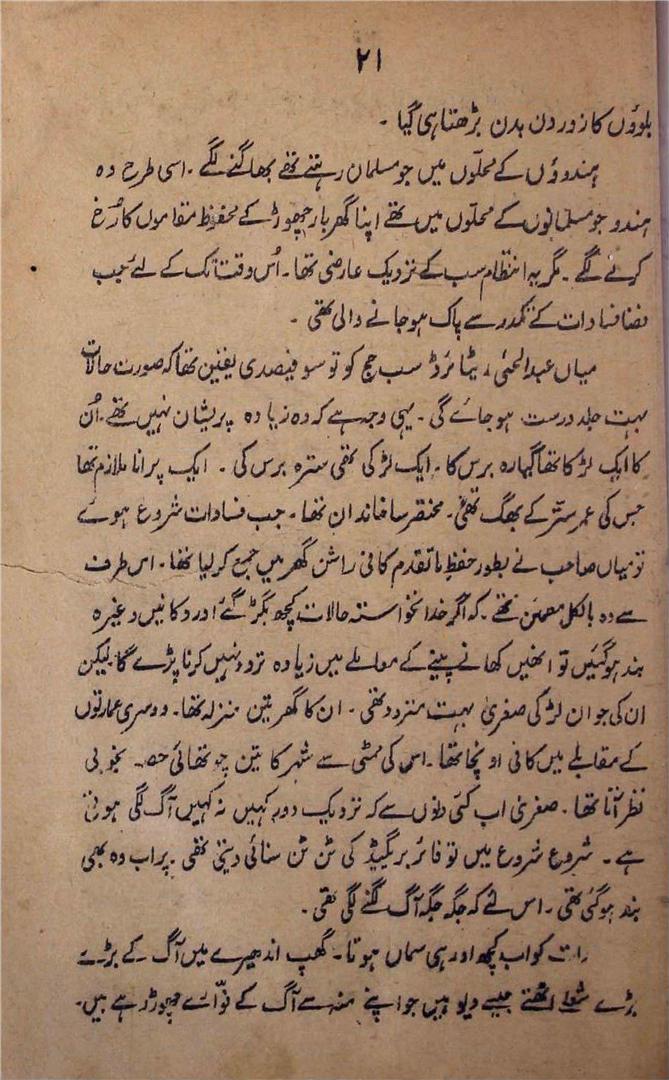 ۲۱
بلوؤں کا زور دن بدن بڑھتا ہی گیا ۔
ہندوؤں کے محلّوں میں جو مسلمان رہتے تھے بھاگنے لگے ۔ اسی طرح وہ
ہندو جو مسلمانوں کے محلّوں میں تھے اپنا گھر بار چھوڑ کے محفوظ مقاموں کا رُخ
کرنے لگے ۔ مگر یہ انتظام سب کے نزدیک عارضی تھا ۔ اُس وقت تک کے لئے جب
فضا فسادات کے تکدر سے پاک ہو جانے والی تھی ۔
میاں عبدالحئی ریٹائرڈ سب جج کو تو سو فیصدی یقین تھا کہ صورت حالات
بہت جلد درست ہو جائے گی ۔ یہی وجہ ہے کہ وہ زیادہ پریشان نہیں تھے ۔ اُن
کا ایک لڑکا تھا گیارہ برس کا ۔ ایک لڑکی تھی سترہ برس کی ۔ ایک پرانا ملازم تھا
جس کی عمر ستّر کے بھگ تھی ۔ مختصر سا خاندان تھا ۔ جب فسادات شروع ہوئے
تو میاں صاحب نے بطور حفظِ ماتقدم کافی راشن گھر میں جمع کر لیا تھا ۔ اس طرف
سے وہ بالکل مطمئن تھے ۔ کہ اگر خدانخواستہ حالات کچھ بگڑ گئے اور دوکانیں وغیرہ
بند ہو گئیں تو انھیں کھانے پینے کے معاملے میں زیادہ تردد نہیں کرنا پڑے گا لیکن
ان کی جوان لڑکی صغریٰ بہت متردد تھی ۔ ان کا گھر تین منزلہ تھا ۔ دوسری عمارتوں
کے مقابلے میں کافی اونچا تھا ۔ اس کی ممٹی سے شہر کا تین چوتھائی حصہ بخوبی
نظر آتا تھا ۔ صغریٰ اب کئی دنوں سے کہ نزدیک دور کہیں نہ کہیں آگ لگی ہوتی
ہے ۔ شروع شروع میں تو فائر بریگیڈ کی ٹن ٹن سنائی دیتی تھی ۔ پر اب وہ بھی
بند ہو گئی تھی ۔ اس لئے کہ جگہ جگہ آگ لگنے لگی تھی ۔
رات کو اب کچھ اور ہی سماں ہوتا ۔ گھپ اندھیرے میں آگ کے بڑے
بڑے شعلے اٹھتے جیسے دیو ہیں جو اپنے منہ سے آگ کے فوّارے چھوڑ رہے ہیں ۔